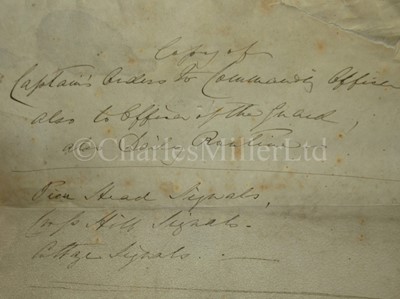 Copy of
Captain's Orders to Commanding Officer
also to Officer of the Guard,
Daily Routine
©CharlesMillerLtd
Pier Head Signals,
Hill Signals.
Signals.